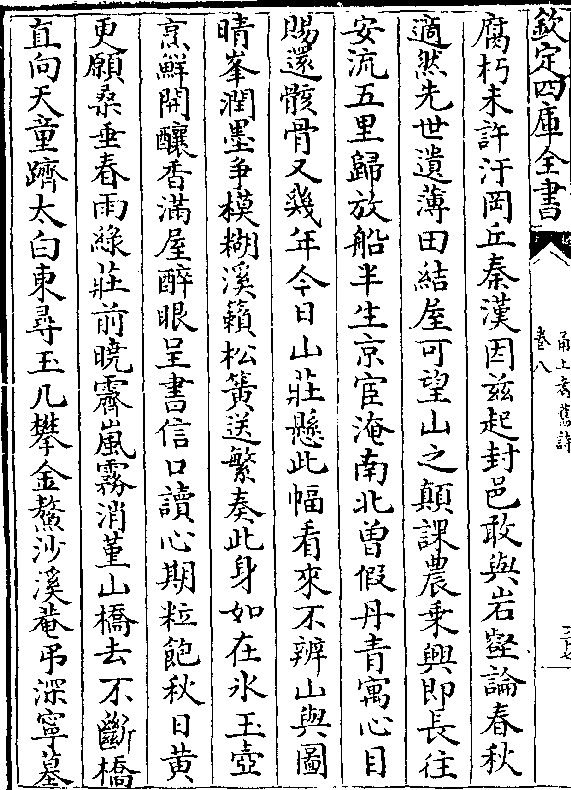 欽定四庫全書
甬上耆舊詩
卷八
腐朽未許汙岡丘秦漢因兹起封邑敢與岩壑論春秋
適然先世遺薄田結屋可望山之顛課農乗興即長往
安流五里歸放船半生京宦淹南北曽假丹青寓心目
賜還骸骨又幾年今日山莊懸此幅看來不辨山與圖
晴峯潤墨爭模糊溪籟松簧送繁奏此身如在氷玉壺
烹鮮開釀香滿屋醉眼呈書信口讀心期粒飽秋日黄
更願桑垂春雨緑莊前曉霽嵐霧消堇山橋去不斷橋
直向天童躋太白東尋玉几攀金鰲沙溪菴弔深寧墓